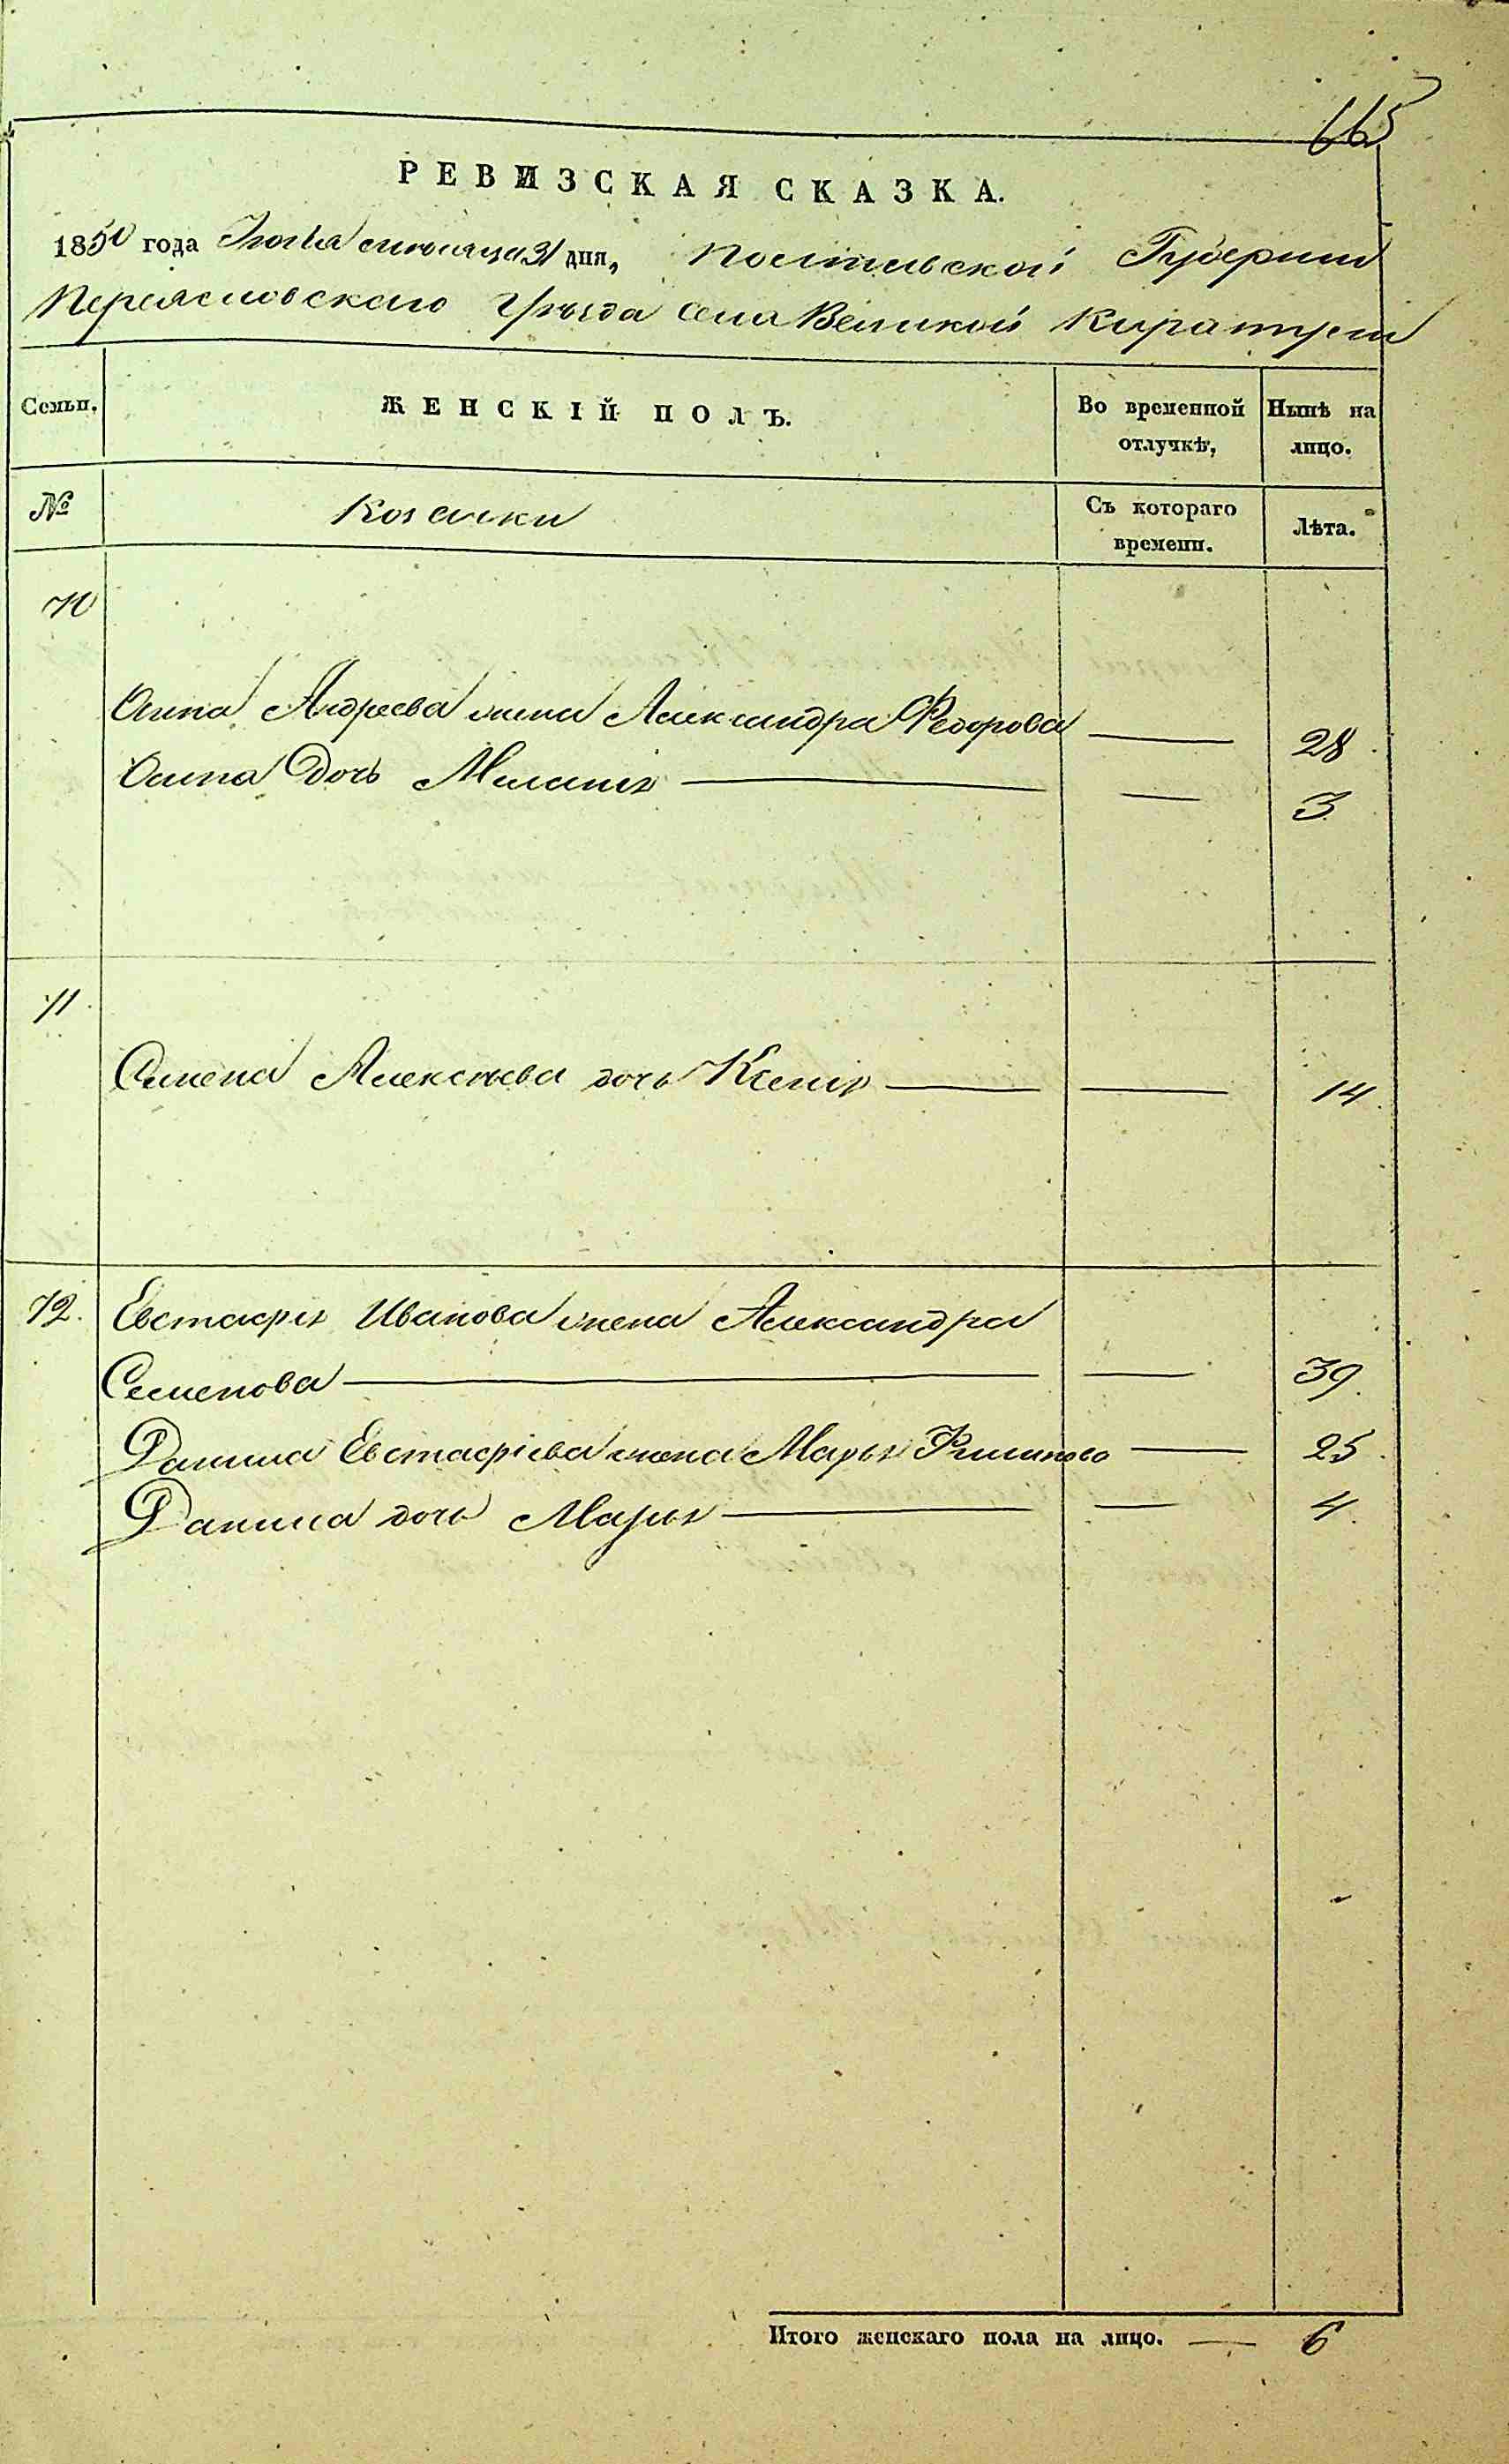 665
РЕВИЗСКАЯ СКАЗКА.
1850 года Іюля месяца 31 дня, Полтавской Губернии
Переясловского Уѣзда села Великой Каратули
Семьи. ЖЕНСКІЙ ПОЛЪ. Во временной отлучкѣ, Нынѣ на лицо.
№ Козачки Съ котораго времени. Лѣта.
70
Анна Андреева жена Александра Федорова — 28
Анна дочь Меланія — — 3
71
Семена Алексѣева дочь Ксенія — — 14
72. Евстафія Иванова жена Александра
Семенова — — 39.
Данила Евстафіева жена Марья Филипова — 25
Данила дочь Марья — — 4
Итого женскаго пола на лицо. — 6